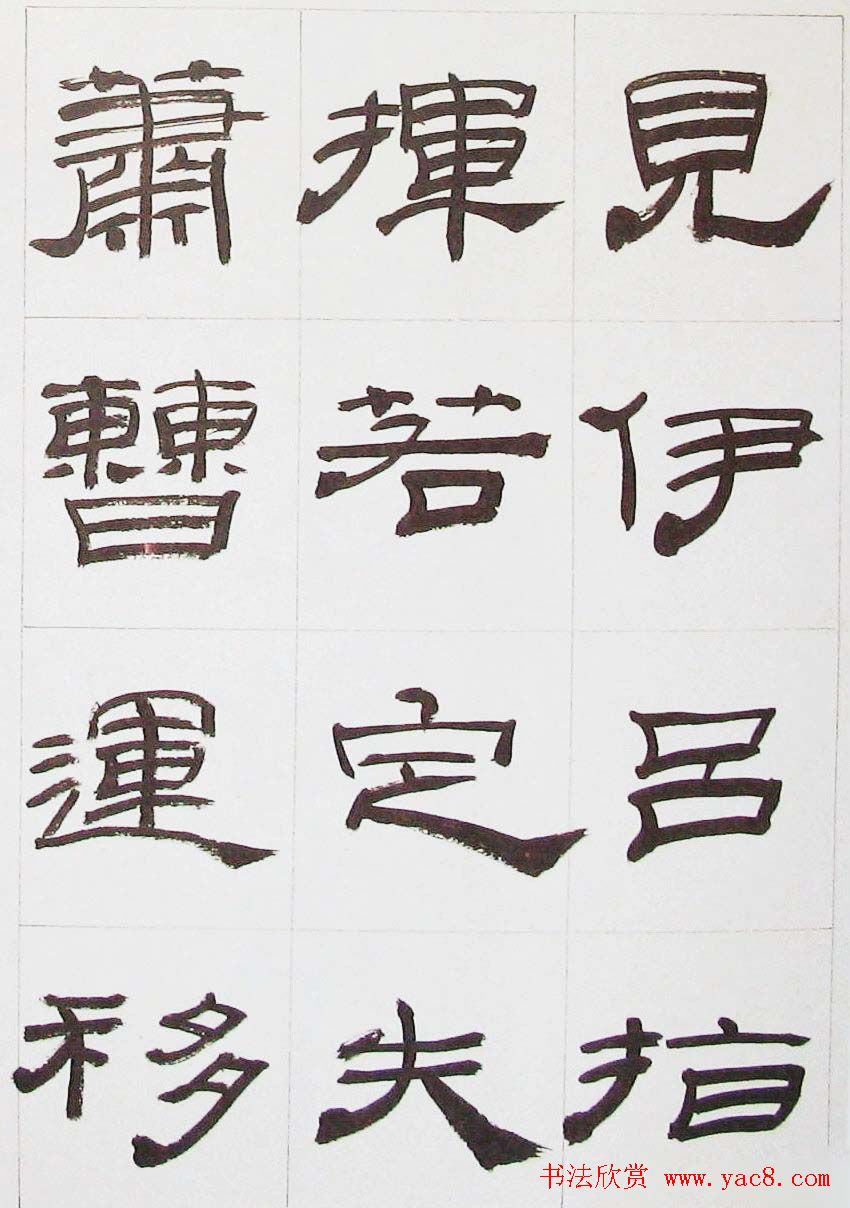 見伊呂指
揮若定失
蕭曹運移
书法欣赏 www.yac8.com